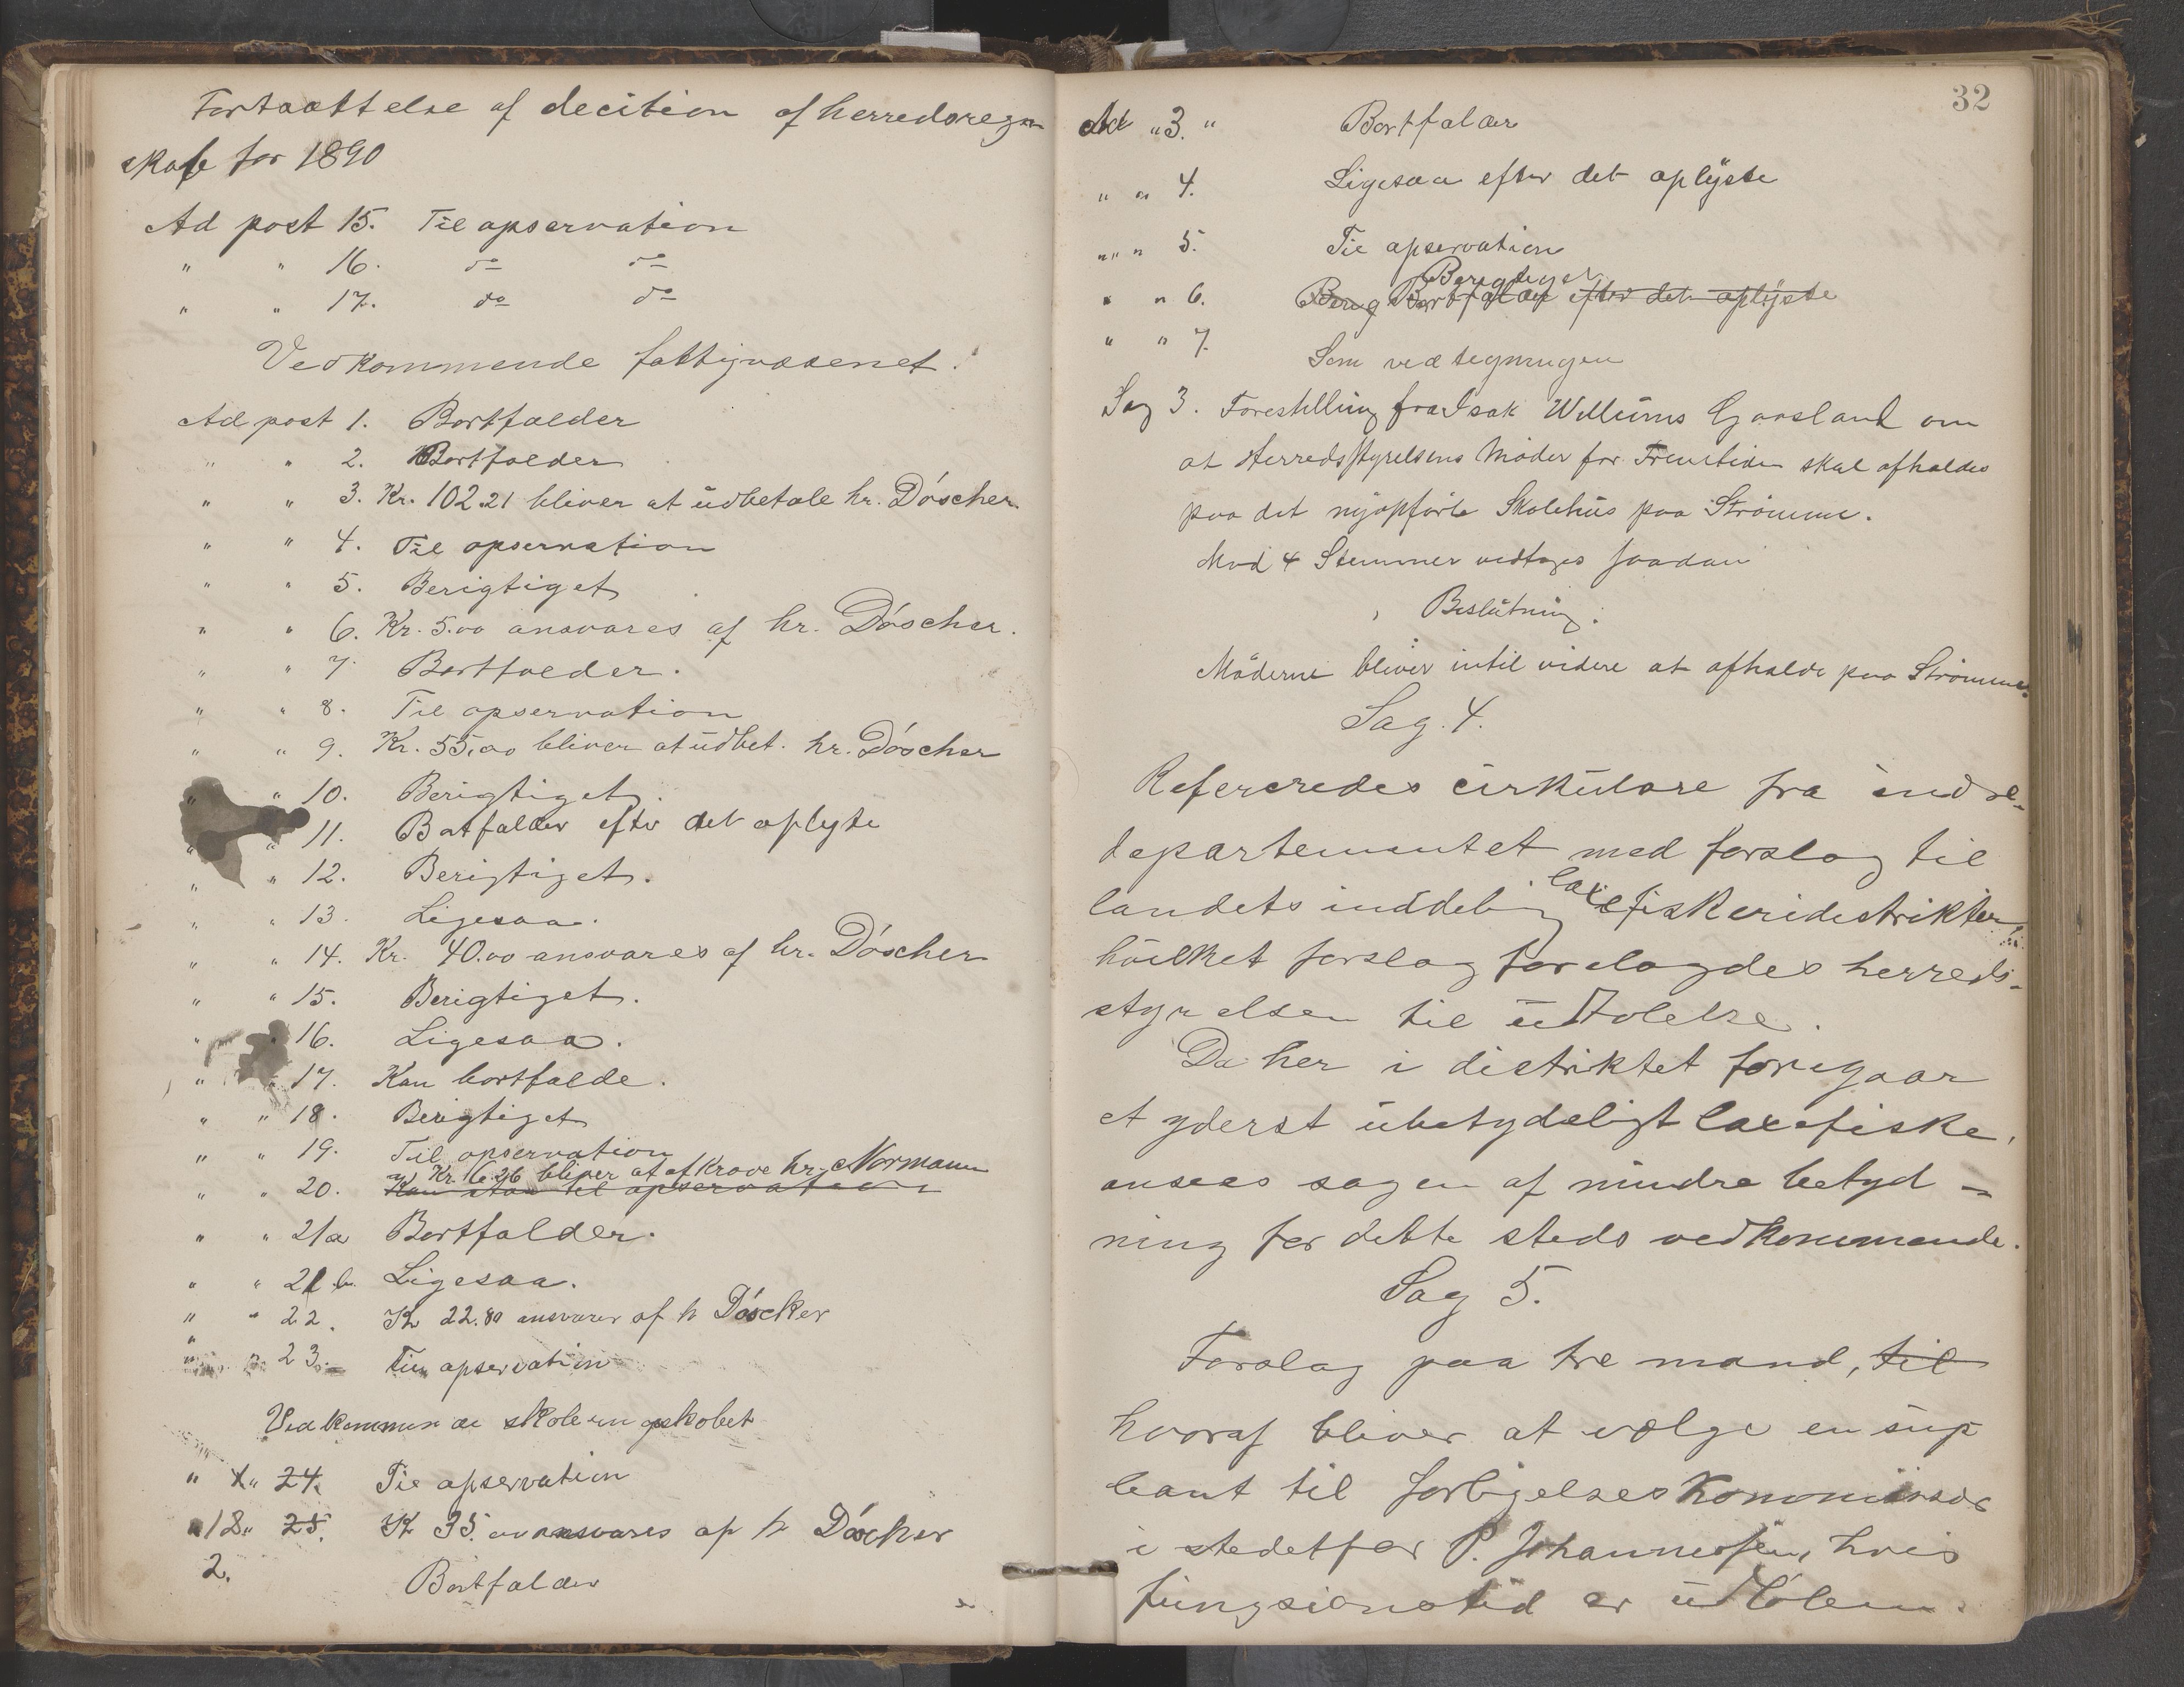 Fortsættelse af decition af herredsregn
skab for 1890
Ad post 15. Til opservation
" " 16. do do
" " 17. do do
Vedkommende fattigvæsenet.
Ad post 1. Bortfalder
" " 2. Bortfalder
" " 3. Kr. 102.21 bliver at üdbetale hr. Döscher.
" " 4. Til opservation
" " 5. Berigtiget
" " 6. Kr. 5.00 ansvares af hr. Döscher.
" " 7. Bortfalder.
" " 8. Til opservation
" " 9. Kr. 55,00 bliver at üdbet. hr. Döscher
" " 10. Berigtiget.
" " 11. Bortfalder efter det oplyste
" " 12. Berigtiget.
" " 13. Ligesaa.
" " 14. Kr. 40.00 ansvares af hr. Döscher
" " 15. Berigtiget.
" " 16. Ligesaa.
" " 17. Kan bortfalde.
" " 18. Berigtiget
" " 19. Til opservation
Kr. 6.26 bliver at afkræve hr. Normann
" " 20. Kan staa til opservation
" " 21a Bortfalder.
" " 21 b. Ligesaa.
" " 22. Kr 22.80 ansvares af h Döscker
" " 23. Til opservation
Vedkommende skoleregnskabet
" 1" 24. Til opservation
" 18" 25. Kr 35.00 ansvares af h Döscher
2. Bortfalder
32
Ad " 3. " Bortfalder
" " 4. Ligesaa efter det oplÿste
" " 5. Til opservation
Berigtiget
" " 6. Berig Bortfalder efter det oplÿste
" " 7. Som ved tegningen
Sag 3. Forestilling fra Isak Willüms Gaasland om
at Herredsstyrelsens Möder for Fremtiden skal afholdes
paa det nyopförte Skolehüs paa Strömme.
Mod 4 Stemmer vedtages saadan
Beslütning.
Möderne bliver intil videre at afholde paa Strömme.
Sag. 4.
Refereredes cirkülære fra indre-
departementet med forslag til
landets inddeling i laxefiskeridistrikter
hvilket forslag forelagdes herreds-
styrelsen til üdtalelse.
Da her i distriktet foregaar
et yderst übetydeligt laxefiske,
ansees sagen af mindre betyd-
ning for dette steds vedkommende.
Sag 5.
Forslag paa tre mænd, til
hvoraf bliver at vælge en süp
leant til forligelseskommissær
i stedetfor P. Johannessen, hvis
füngsionstid er üdlöben.